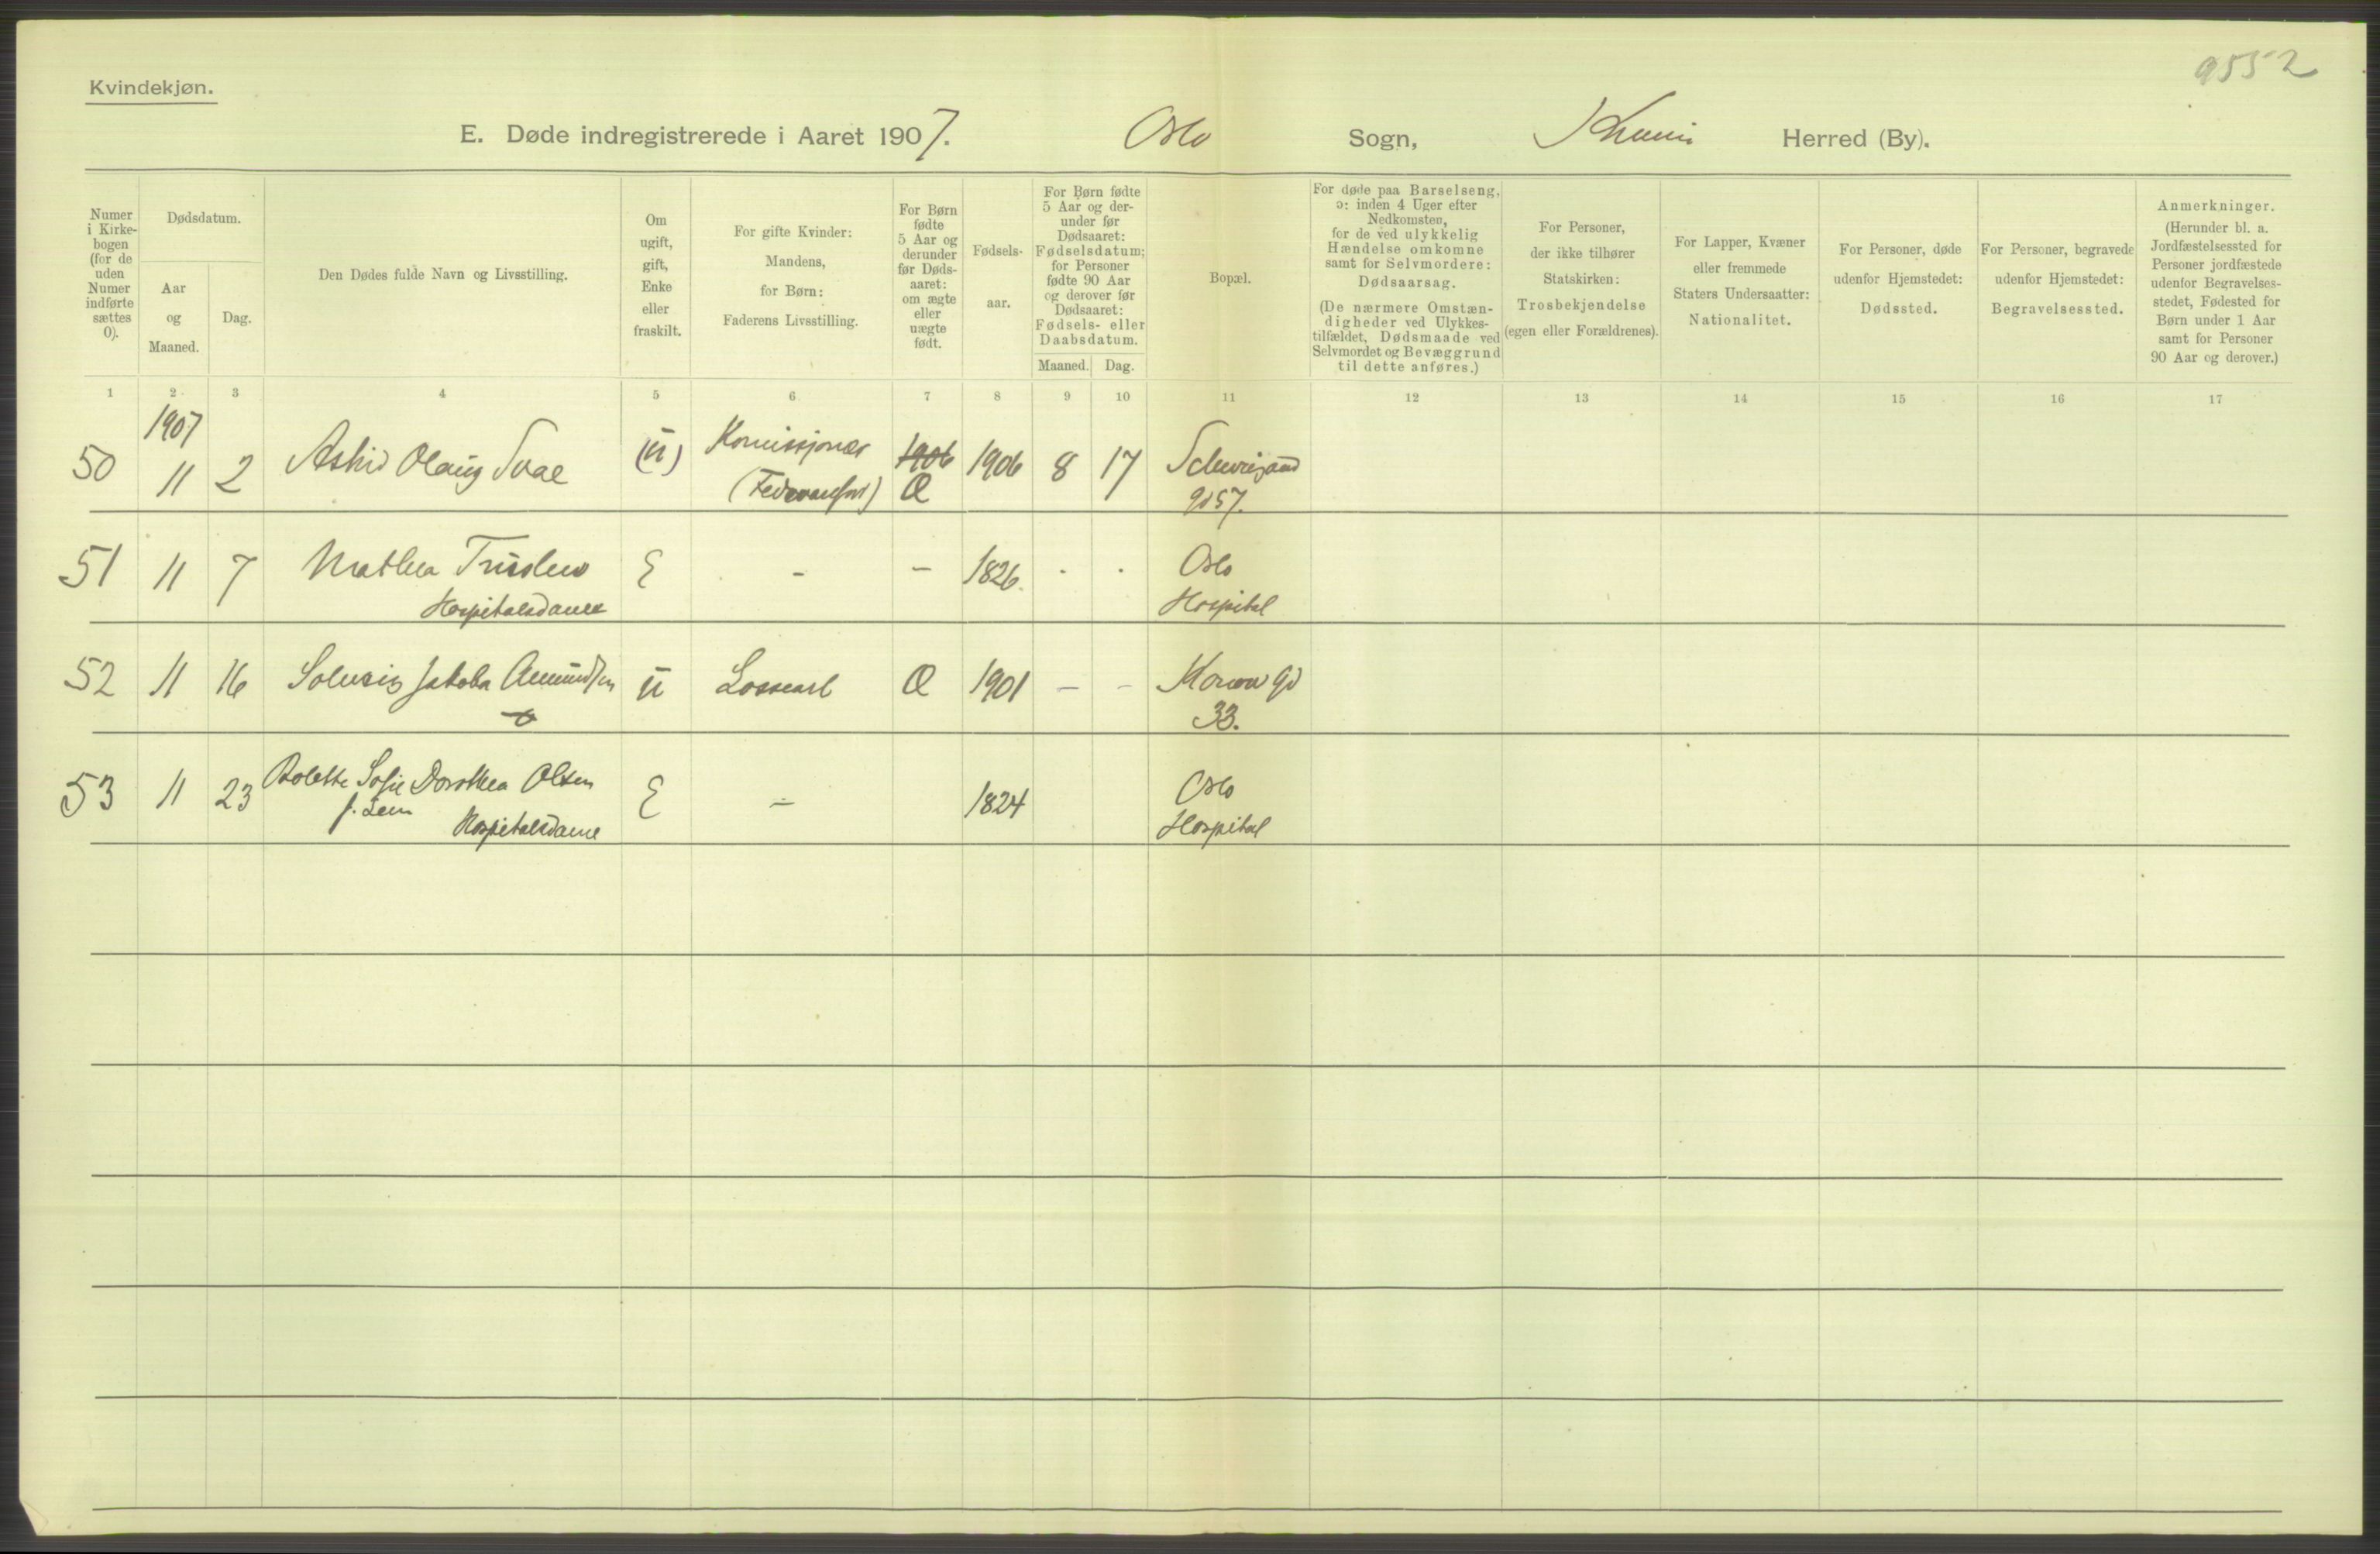 9552
Kvindekjøn.
E. Døde indregistrerede i Aaret 1907. Oslo Sogn, Herred (By).
Numer i Kirke-bogen (for de uden Numer indførte sættes 0).
Dødsdatum.
Aar og Maaned.
Dag.
Den Dødes fulde Navn og Livsstilling.
Om ugift, gift, Enke eller fraskilt.
For gifte Kvinder: Mandens, for Børn: Faderens Livsstilling.
For Børn fødte 5 Aar og derunder før Døds-aaret: om ægte eller uægte født.
Fødsels-aar.
For Børn fødte 5 Aar og der-under før Dødsaaret: Fødselsdatum; for Personer fødte 90 Aar og derover før Dødsaaret: Fødsels- eller Daabsdatum.
Maaned. Dag.
Bopæl.
For døde paa Barselseng, ɔ: inden 4 Uger efter Nedkomsten, for de ved ulykkelig Hændelse omkomne samt for Selvmordere: Dødsaarsag.
(De nærmere Omstæn-digheder ved Ulykkes-tilfældet, Dødsmaade ved Selvmordet og Bevæggrund til dette anføres.)
For Personer, der ikke tilhører Statskirken: Trosbekjendelse (egen eller Forældrenes).
For Lapper, Kvæner eller fremmede Staters Undersaatter: Nationalitet.
For Personer, døde udenfor Hjemstedet: Dødssted.
For Personer, begravede udenfor Hjemstedet: Begravelsessted.
Anmerkninger. (Herunder bl. a. Jordfæstelsessted for Personer jordfæstede udenfor Begravelses-stedet, Fødested for Børn under 1 Aar samt for Personer 90 Aar og derover.)
1 2 3 4 5 6 7 8 9 10 11 12 13 14 15 16 17
1907
50 11 2 Astrid Olaug Svae (ü) Komissjonær 1906 1906 8 17
Æ gd 57.
51 11 7 Mathea E - - 1826 - - Oslo
Hospitalsdame Hospital
52 11 16 Solveig Jakoba Amundsen ü Lossearb Æ 1901 - - gd
33.
53 11 23 Bolette Sofie Dorothea Olsen E - 1824 Oslo
f. Lem Hospitalsdame Hospital